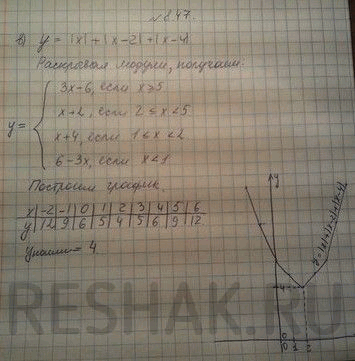 №8.47.
в) y = |x| + |x-2| + |x-4|
Раскрывая модули, получаем:
y =
3x-6, если x≥5
x+2, если 2≤x<5
x+4, если 1≤x<2
6-3x, если x<1
Построим график
x|-2|-1|0|1|2|3|4|5|6
y|12|9|6|5|4|5|6|9|12
yнаим = 4
y
y=|x|+|x-2|+|x-4|
4
0
0 1 2
RESHAK.RU